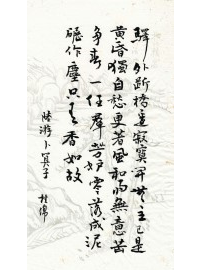 驛外断橋邊寂寞开无主已是
黄昏獨自愁更著風和雨無意苦
争春一任羣芳妒零落成泥
碾作塵只有香如故
陸游卜算子